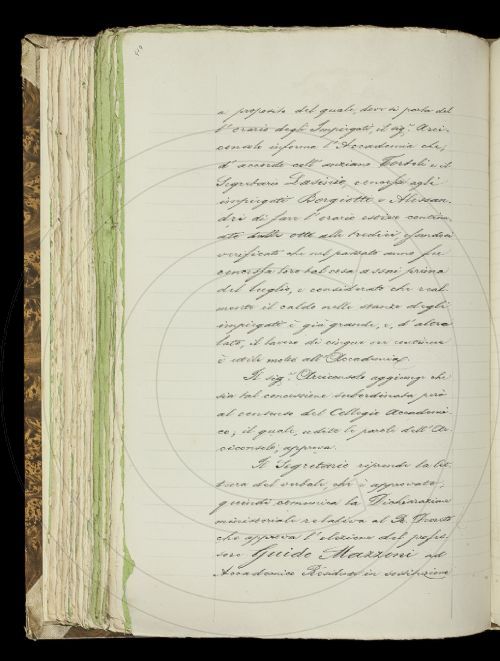 a proposito del quale, dove si parla del
l'orario degli Impiegati, il sig.r Arci-
consolo informa l'Accademia che,
d'accordo coll'anziano Tortoli e il
Segretario concesse agli
impiegati Borgiotti e Alessan-
dri di fare l'orario estivo continu-
ato dalle otto alle tredici,
verificato che nel passato anno fu
concessa loro tal cosa a soni prima
del luglio, e considerato che real-
mente il caldo nelle stanze degli
impiegati è già grande, e, d'altro
lato, il lavoro di cinque ore continue
è utile molto all'Accademia.
Il sig.r Arciconsolo aggiunge che
sia tal concessione subordinata però
al consenso del Collegio accademi-
co, il quale, udite le parole dell'Ar-
ciconsolo, approva.
Il Segretario riprende la let-
tura del verbale, che è approvato;
quindi comunica la Dichiarazione
ministeriale relativa al R. Decreto
che approva l'elezione del profes-
sore Guido Mazzoni ad
Accademico Residente in sostituzione